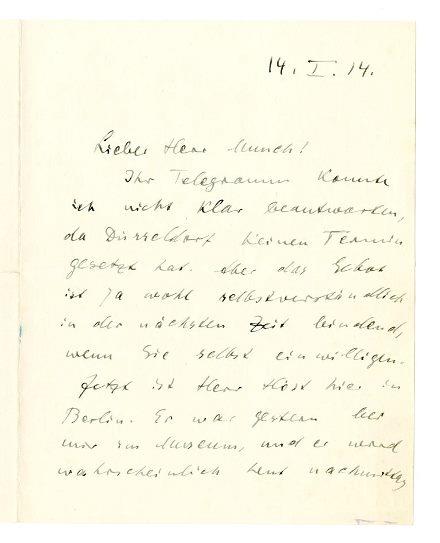 14. I. 14.
Lieber Herr Munch!
Ihr Telegramm konnte
ich nicht klar beantworten,
da Düsseldorf keinen Termin
gesetzt hat. Aber das Gebot
ist ja wohl selbstverständlich
in der nächsten Zeit bindend,
wenn Sie selbst einwilligen.
Jetzt ist Herr Høst hier in
Berlin. Er war gestern bei
mir im Museum, und er wird
wahrscheinlich heut nachmittag